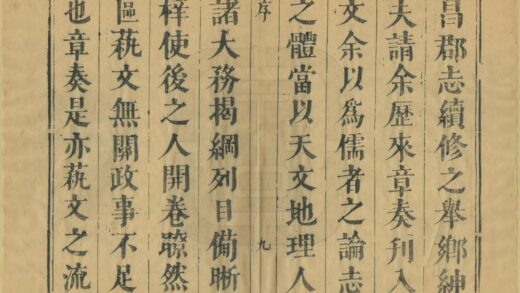 昌郡志續修之舉鄉紳
夫請余歷來章奏刊入
文余以爲儒者之論志
之體當以天文地理人
序 九
諸大務揭綱列目備晰
梓使後之人開卷瞭然
區蓻文無關政事不足
也章奏是亦蓻文之流